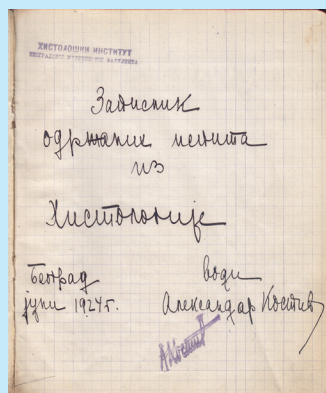 ХИСТОЛОШКИ ИНСТИТУТ
БЕОГРАДСКОГ МЕДИЦИНСКОГ ФАКУЛТЕТА
Записник
одржаних испита
из
Хистологије
Београд
јуни 1924 г.
води
Александар Костић
АКостић